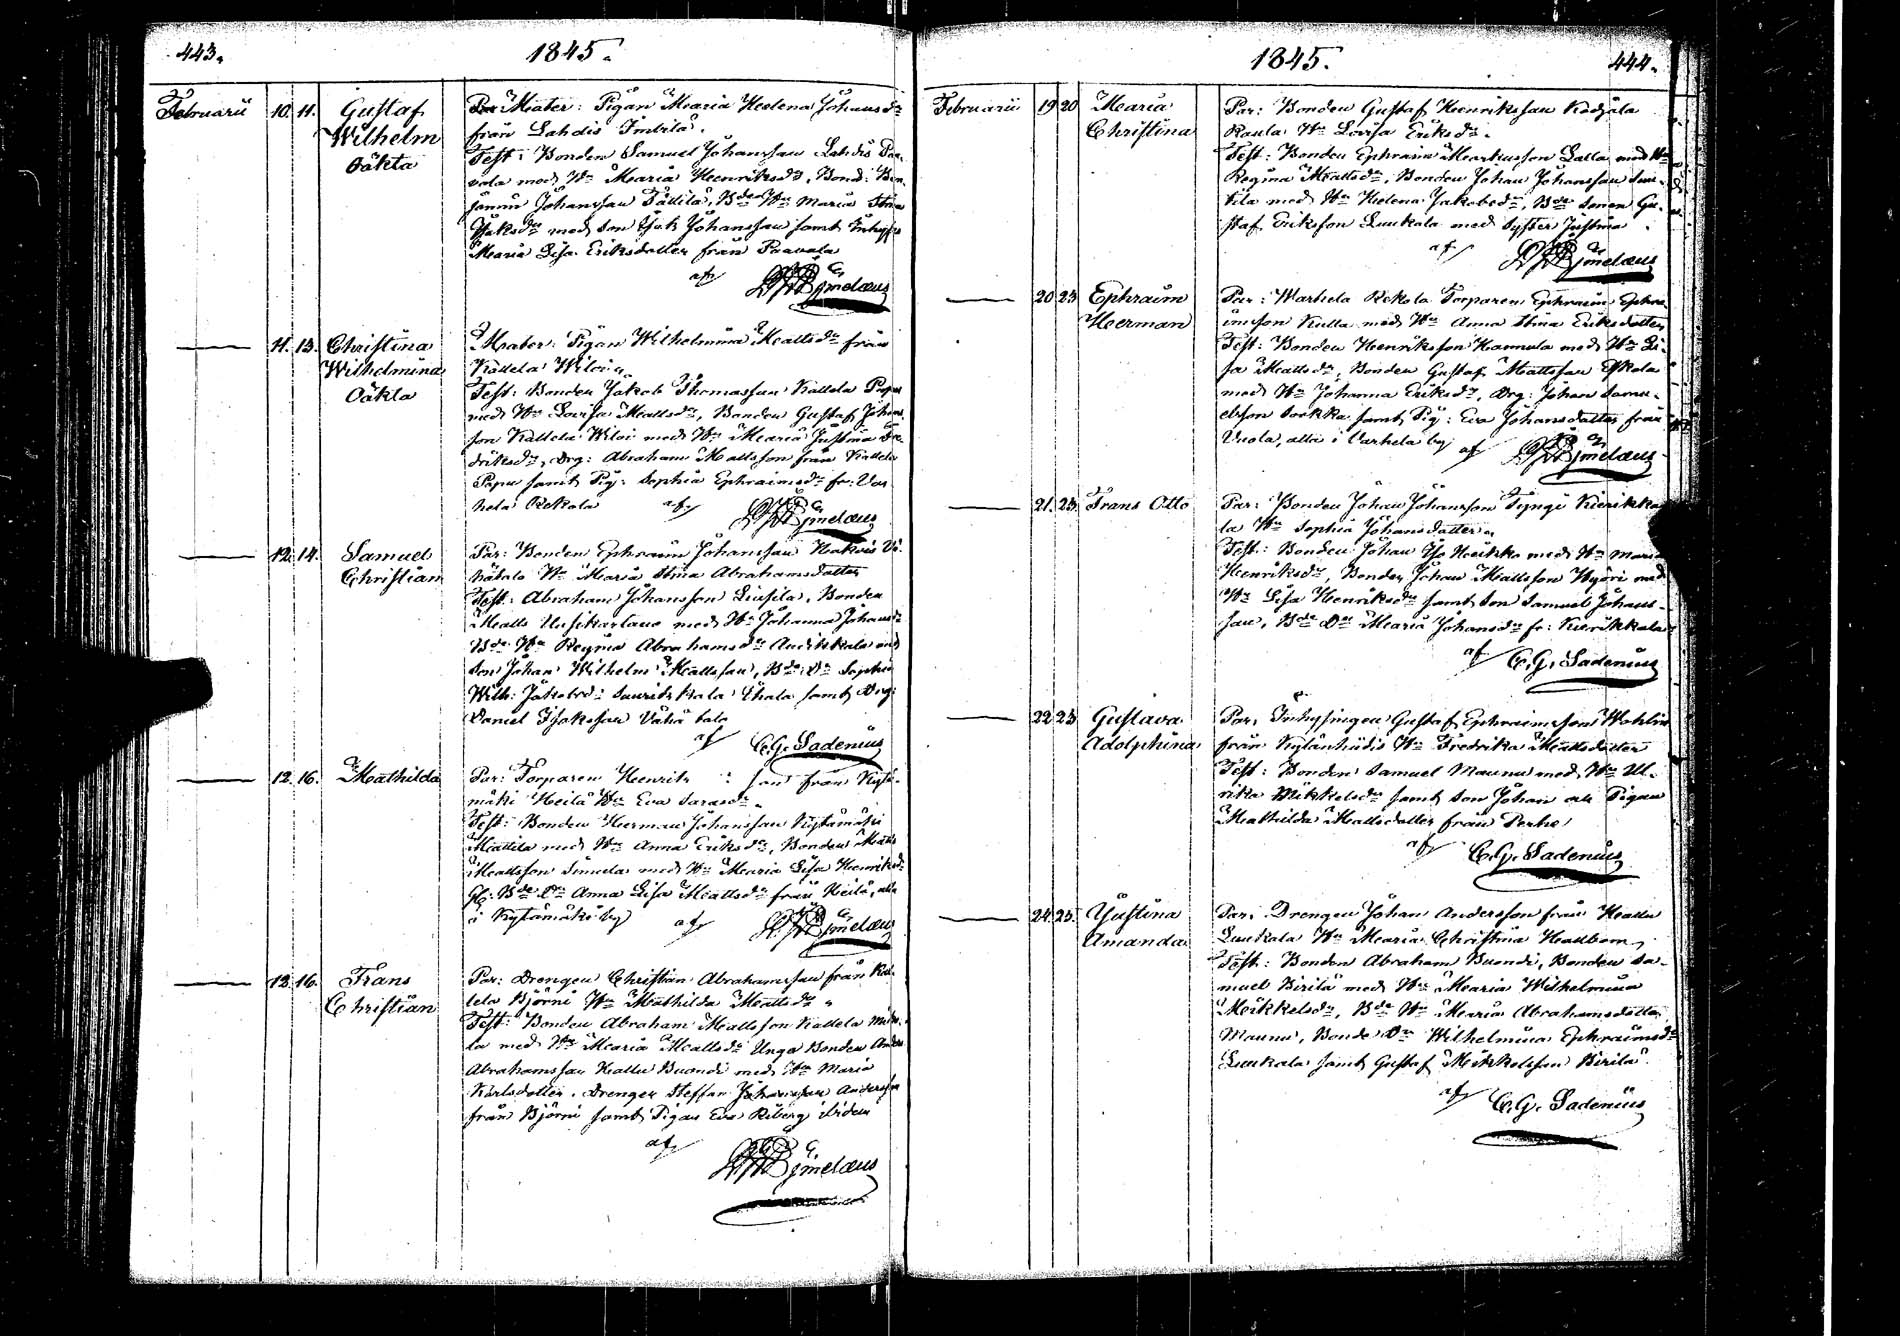 443.
1845.
Februarii 10. 11. Gustaf Wilhelm oäkta
Mater: Pigan Maria Helena Johansdr
från Lahdis Imbilä.
Test: Bonden Samuel Johansson Lahdis Paa-
vola med Hu Maria Henriksdr, Bond: Ben-
jamin Johansson Tattila, Bde Hu Maria Stina
Isaksdr med son Isak Johansson samt Inhys:
Maria Lisa Eriksdotter från Paavala
af
11. 13. Christina Wilhelmina Oäkta
Mater: Pigan Wilhelmina Mattsdr från
Kallela Wiloi
Test: Bonden Jakob Thomasson Kallela Papu
med Hu Lovisa Mattsdr, Bonden Gustaf Johans
son Kallela Wiloi med Hu Maria Justina Fre
driksdr, Drg: Abraham Mattsson från Kallela
Papu samt Pig: Sophia Ephraimsdr fr: Var
hela Rekola af
12. 14. Samuel Christian
Par: Bonden Ephraim Johansson
Hu Maria Stina Abrahamsdotter
Test: Abraham Johansson Liusila, Bonden
Matts Uusikartano med Hu Johanna Johansdr
Bde Hu Regina Abrahamsdr Anikkala med
son Johan Wilhelm Mattsson, Bde Dr Sophia
Wilh: Jakobsdr Sauriskala Ihala samt Drg:
Daniel Isaksson Vähä talo
af C. G. Sadenius
12. 16. Mathilda
Par: Torparen Henrik son från Kylä-
mäki Heilä Hu Eva Sarasdr
Test: Bonden Herman Johansson Kylämäki
Mattila med Hu Anna Eriksdr, Bonden Matts
Mattsson Simula med Hu Maria Lisa Henriksdr
Bde Dr Anna Lisa Mattsdr från Heilä, alla
i Kylämäki by af
12. 16. Frans Christian
Par: Drengen Christian Abrahamsson från Kal-
lela Björni Hu Mathilda Mattsdr
Test: Bonden Abraham Mattsson Kallela
la med Hu Maria Mattsdr Unga Bonden Anders
Abrahamsson Hallu Buondi med Hu Maria
Karlsdotter, Drengen Steffan Johansson Andersson
från Björni samt Pigan Eva Riberg ibidem
af
1845.
444.
Februarii 19 20 Maria Christina
Par: Bonden Gustaf Henriksson Kodjala
Raula Hu Lovisa Eriksdr
Test: Bonden Ephraim Markusson Lalla med Hu
Regina Mattsdr, Bonden Johan Johansson Sun-
tila med Hu Helena Jakobsdr, Bde sonen Gu-
staf Eriksson Luukala med syster Justina
af
20 23 Ephraim Herman
Par: Warhela Rekola Torparen Ephraim Ephra-
imsson Kulla med Hu Anna Stina Eriksdotter
Test: Bonden Henriksson Hannula med Hu Li-
sa Mattsdr, Bonden Gustaf Mattsson Eskola
med Hu Johanna Eriksdr, Drg: Johan Samu-
elsson Sorkka samt Pig: Eva Johansdotter från
Uola, alla i Varhela by af
21. 23. Frans Otto
Par: Bonden Johan Johansson Tyngi Kierikka
la Hu Sophia Johansdotter
Test: Bonden Johan Iso Heikka med Hu Maria
Henriksdr, Bonden Johan Mattsson Hyöri med
Hu Lisa Henriksdr samt son Samuel Johans-
son, Bde Dr Maria Johansdr fr: Kierikkala
af C. G. Sadenius
22 23 Gustava Adolphina
Par: Inhysingen Gustaf Ephraimsson Wahlin
från Hu Fredrika Mattsdotter
Test: Bonden Samuel Maunu med Hu Ul-
rika Mikkelsdr samt son Johan och Pigan
Mathilda Mattsdotter från Perhe
af C. G. Sadenius
24 25. Justina Amanda
Par: Drengen Johan Andersson från Hallu
Luukala Hu Maria Christina Hallbom
Test: Bonden Abraham Buondi, Bonden Sa-
muel Birilä med Hu Maria Wilhelmina
Mikkelsdr, Bde Hu Maria Abrahamsdotter
Maunu, Bonde Dr Wilhelmina Ephraimsdr
Luukala samt Gustaf Mikkelsson Birilä
af C. G. Sadenius